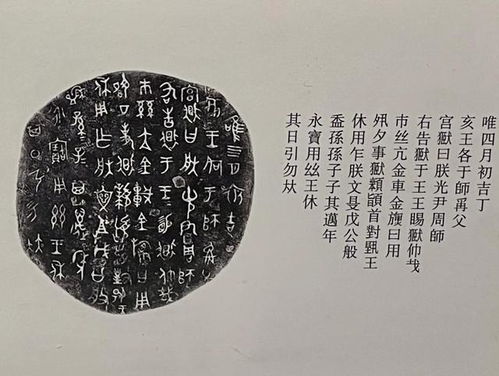 唯四月初吉丁
亥王各于師再父
宮獄曰朕光尹周師
右告獄于王王賜獄仲𢦏
巿丝亢金車金旟曰用
夙夕事獄首對揚王
休用乍朕文戊公般
盉孫孫子子其邁年
永寶用丝王休
其日引勿㚔